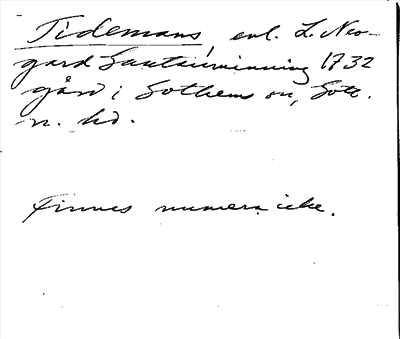 Tidemans, enl. L. Neo-
gard Gautauminning 1732
gård i Gothems sn, Gotl.
n. hd.
Finnes numera icke.